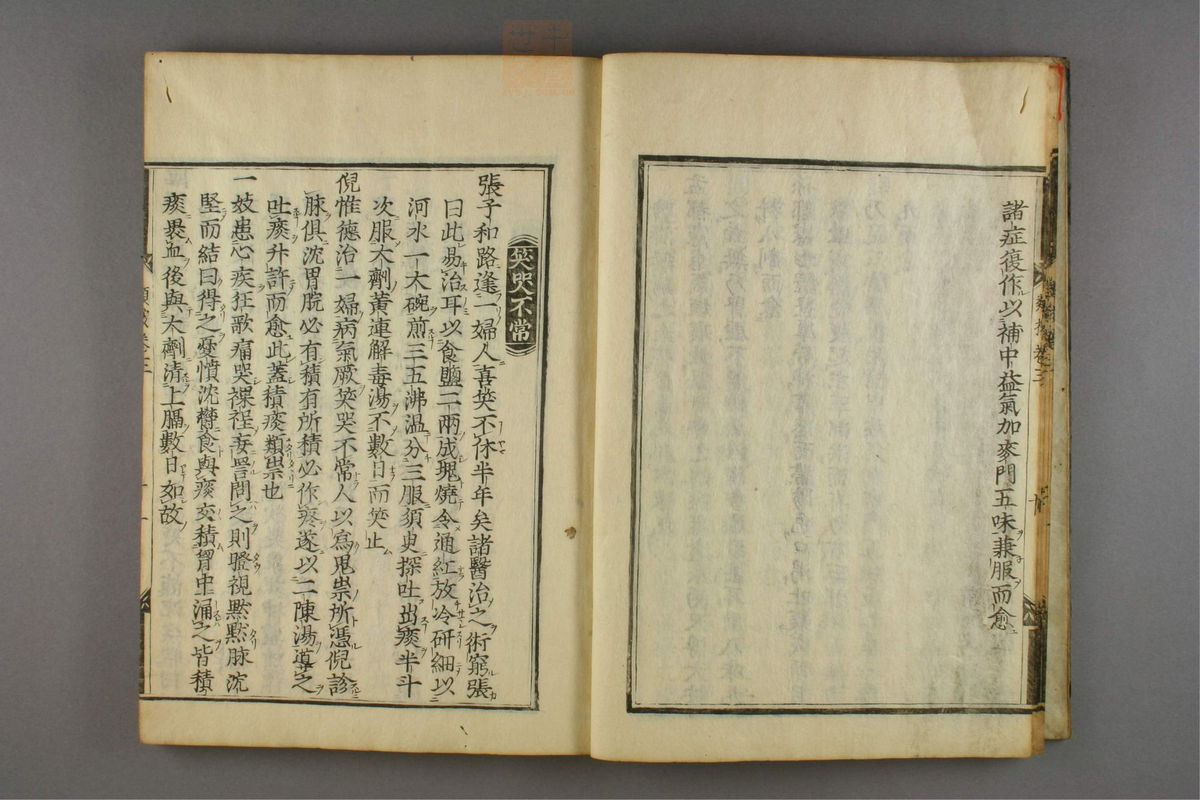 諸症復作以補中益氣加麥門五味兼服而愈
笑哭不常
張子和路逢一婦人喜笑不休半年矣諸醫治之術窮張
曰此易治耳以食鹽二兩成塊燒令通紅放冷研細以
河水一大碗煎三五沸温分三服須臾探吐出痰半斗
次服大劑黄連解毒湯不數日而笑止
倪惟德治一婦病氣厥笑哭不常人以爲鬼祟所憑倪診
脉俱沈胃脘必有積有所積必作疼遂以二陳湯導之
吐痰升許而愈此蓋積痰類祟也
一妓患心疾狂歌痛哭裸裎妄詈問之則瞪視默默脉沈
堅而結曰得之憂憤沈欝食與痰交積胷中涌之皆積
痰裹血後與大劑清上膈數日如故